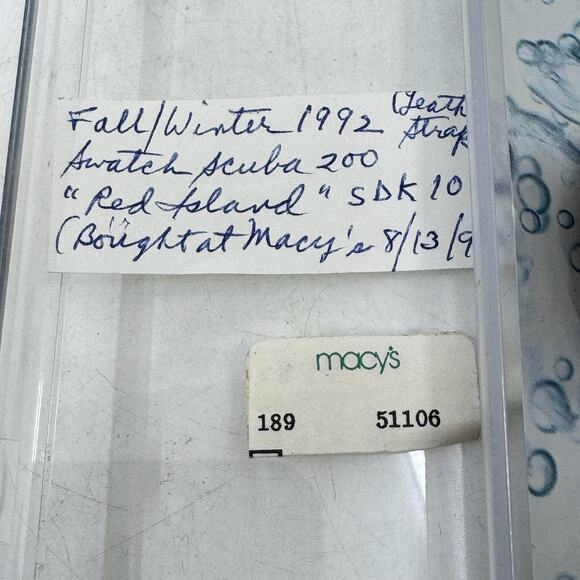 Fall/Winter 1992 (Leath
Strap
Swatch Scuba 200
"Red Island" SDK 10
(Bought at Macy's 8/13/9
macy's
189 51106